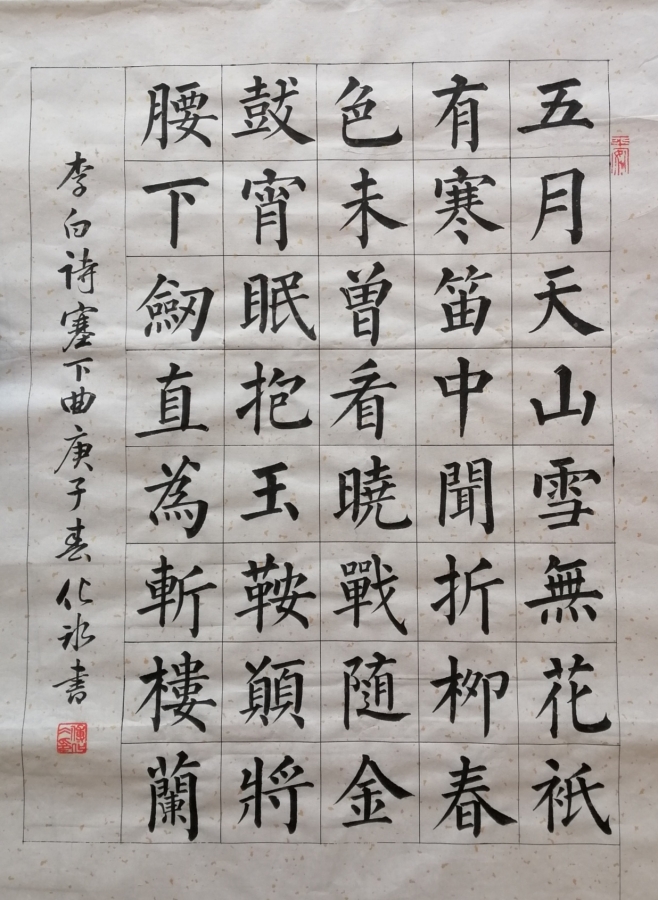 五月天山雪無花祇
有寒笛中聞折柳春
色未曾看曉戰随金
鼓宵眠抱玉鞍願將
腰下劒直為斬樓蘭
李白诗塞下曲庚子春化冰书